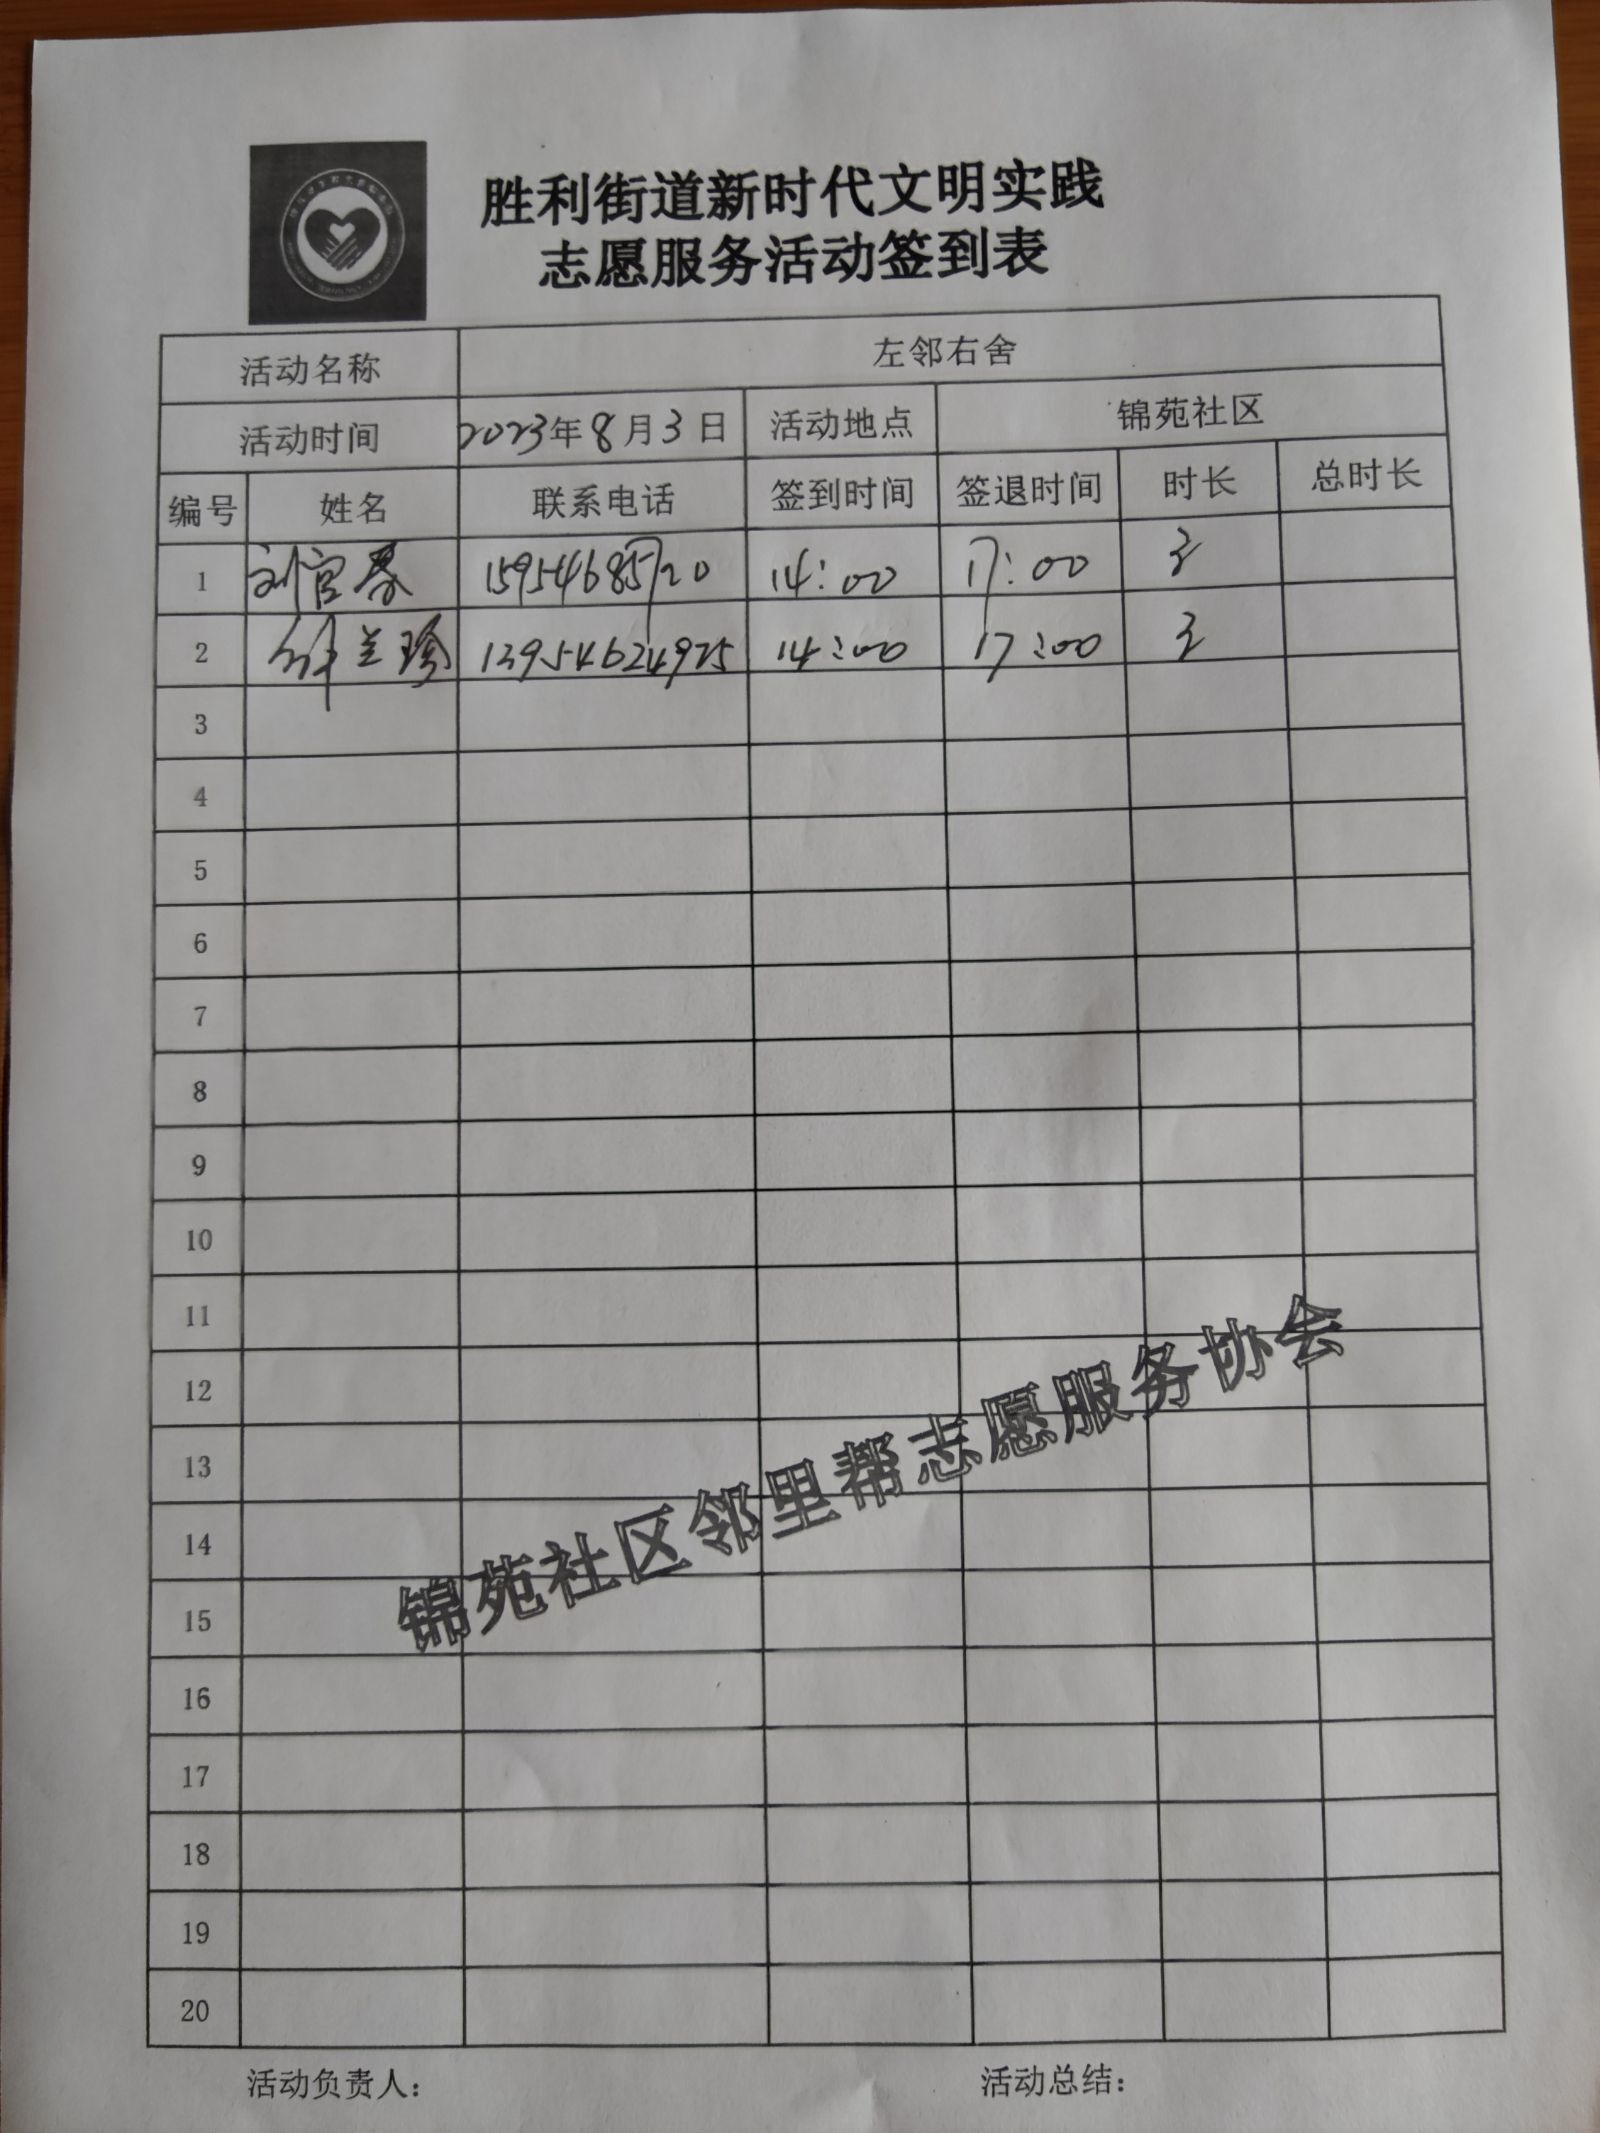 胜利街道新时代文明实践
志愿服务活动签到表
活动名称 左邻右舍
活动时间 2023年8月3日 活动地点 锦苑社区
编号 姓名 联系电话 签到时间 签退时间 时长 总时长
1 刘官春 15954685720 14:00 17:00 3
2 兰珍 13954624975 14:00 17:00 3
3
4
5
6
7
8
9
10
11
12
13
14
15
16
17
18
19
20
锦苑社区邻里帮志愿服务协会
活动负责人： 活动总结：